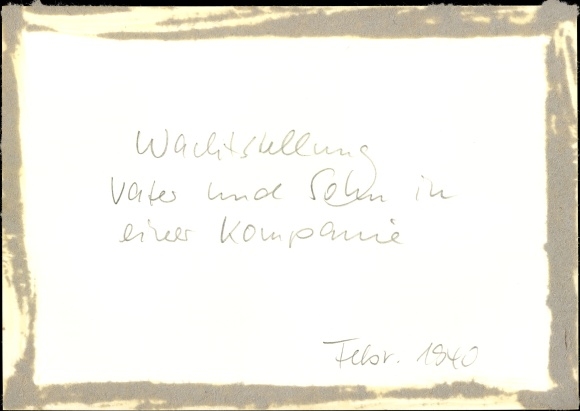 Wachtstellung
Vater und Sohn in
einer Kompanie
Febr. 1940